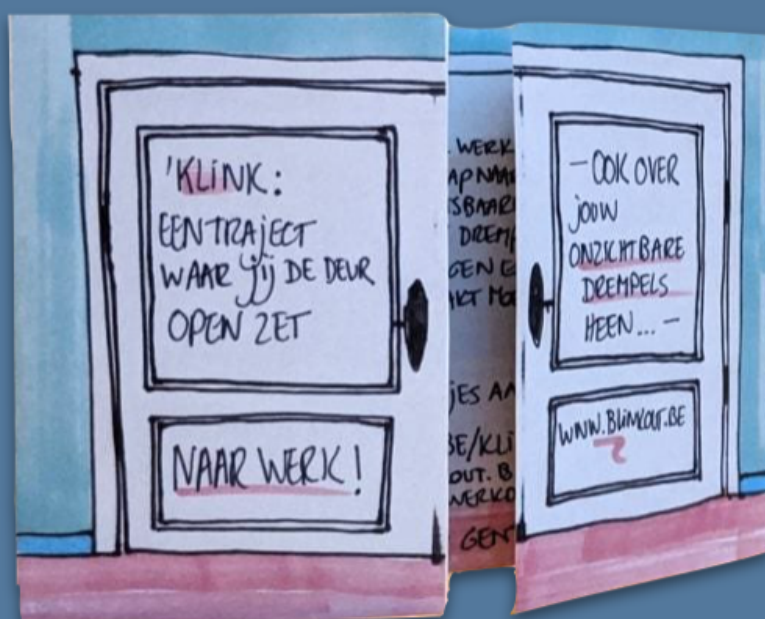 'KLINK:
EEN TRAJECT
WAAR JIJ DE DEUR
OPEN ZET
NAAR WERK!
WERK
DREM
JES AA
BE/KLI
OUT.B
WERKO
GENT
- OOK OVER
JOUW
ONZICHTBARE
DREMPELS
HEEN... -
WWW.BLINKOUT.BE